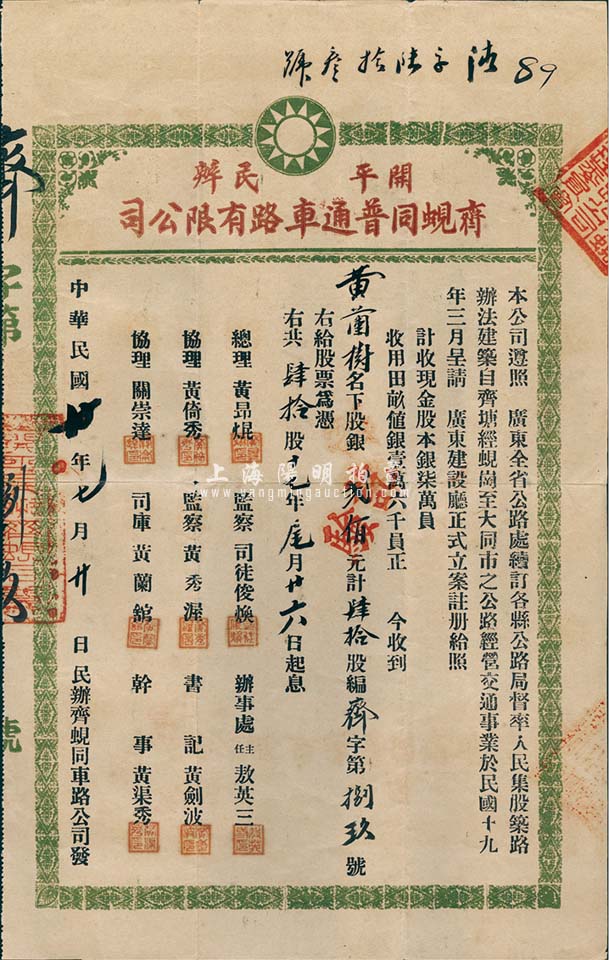 89
開平 民辦
齊蜆同普通車路有限公司
本公司遵照 廣東全省公路處續訂各縣公路局督率人民集股築路
辦法建築自齊塘經蜆岡至大同市之公路經營交通事業於民國十九
年三月呈請 廣東建設廳正式立案註册給照
計收現金股本銀柒萬員
收用田畝値銀壹萬六千員正 今收到
黃蘭樹名下股銀弍佰元計肆拾股編齊字第捌玖號
右給股票爲憑
右共肆拾股 年尾月廿六日起息
總理 黃昂焜 監察 司徒俊煥 辦事處主任 敖英三
協理 黃倚秀 監察 黃秀渥 書記 黃劍波
協理 關崇達 司庫 黃蘭舘 幹事 黃渠秀
中華民國廿年七月廿日民辦齊蜆同車路公司發
齊字第
號
上海陽明拍賣
www.yangmingauction.com